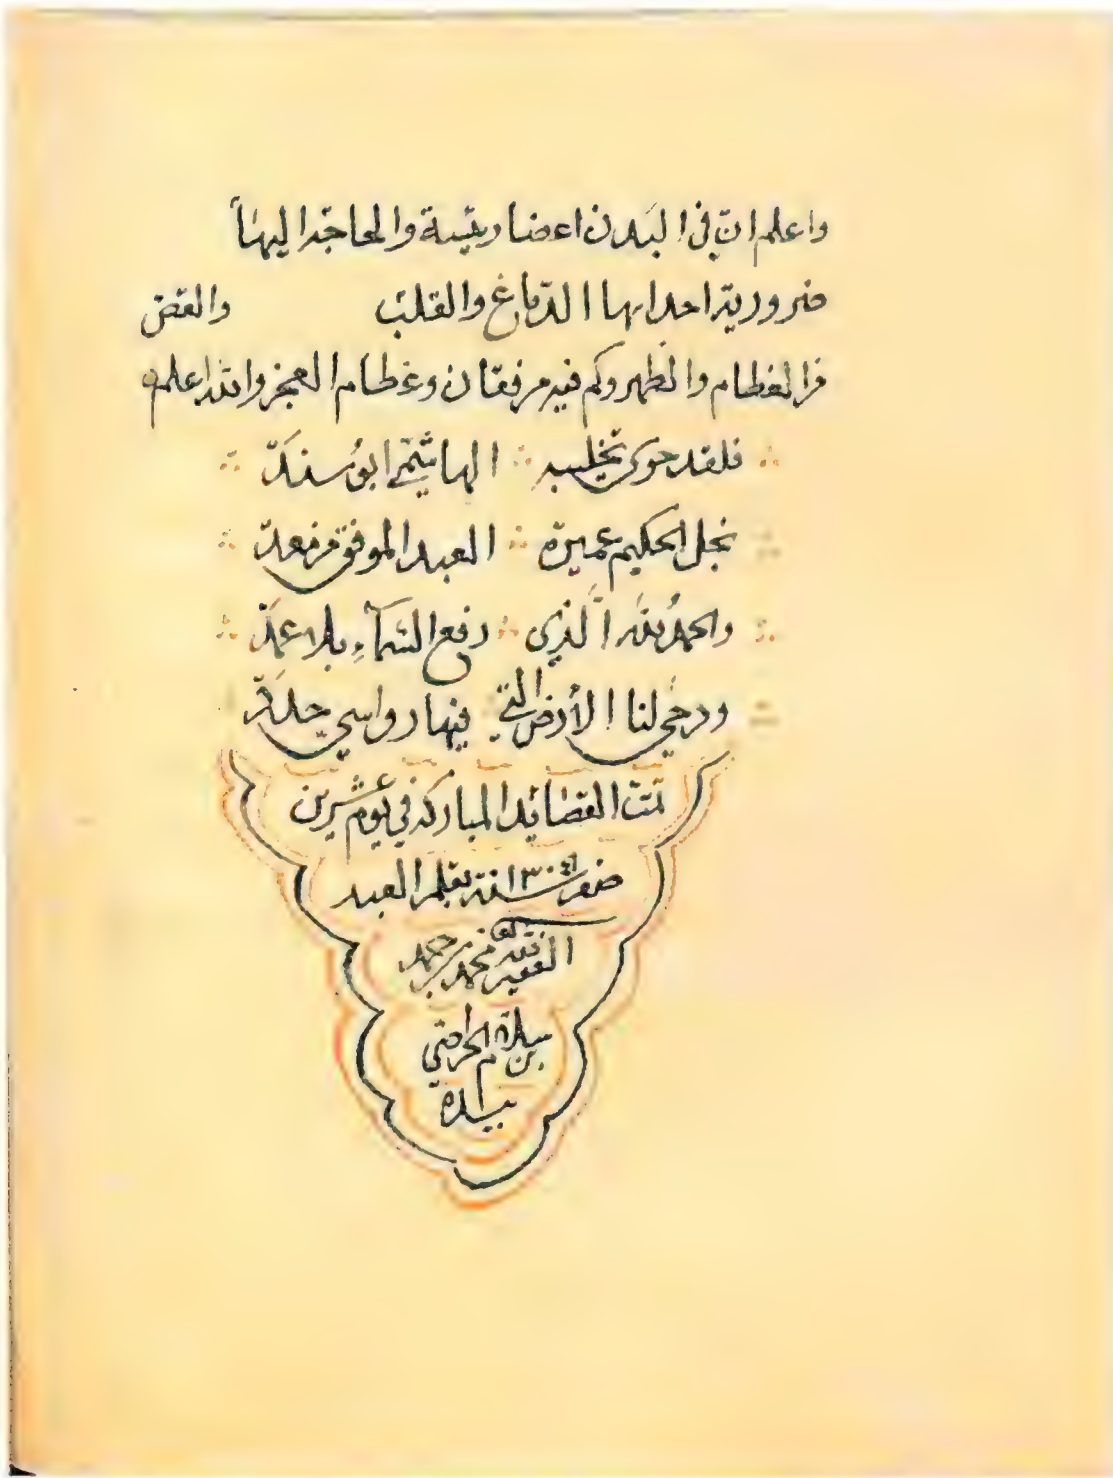 واعلم انّ في البدن اعضا رئيسة والحاجة اليها
ضرورية احداها الدّماغ والقلب والقض
والظهر وكم فيه مرفقان وعظام العجز والله اعلم
فلقد حوى الهاشمي ابو سند
نجل الحكيم عميرة العبد الموفق
والحمد لله الّذي رفع السّماء بلا عمد
ودحى لنا الأرض التي فيها رواسي
تمت القصائد المباركة في يوم عشرين
صفر سنة بقلم العبد
الفقير لله محمد بن حمد
بن سلام
بيده